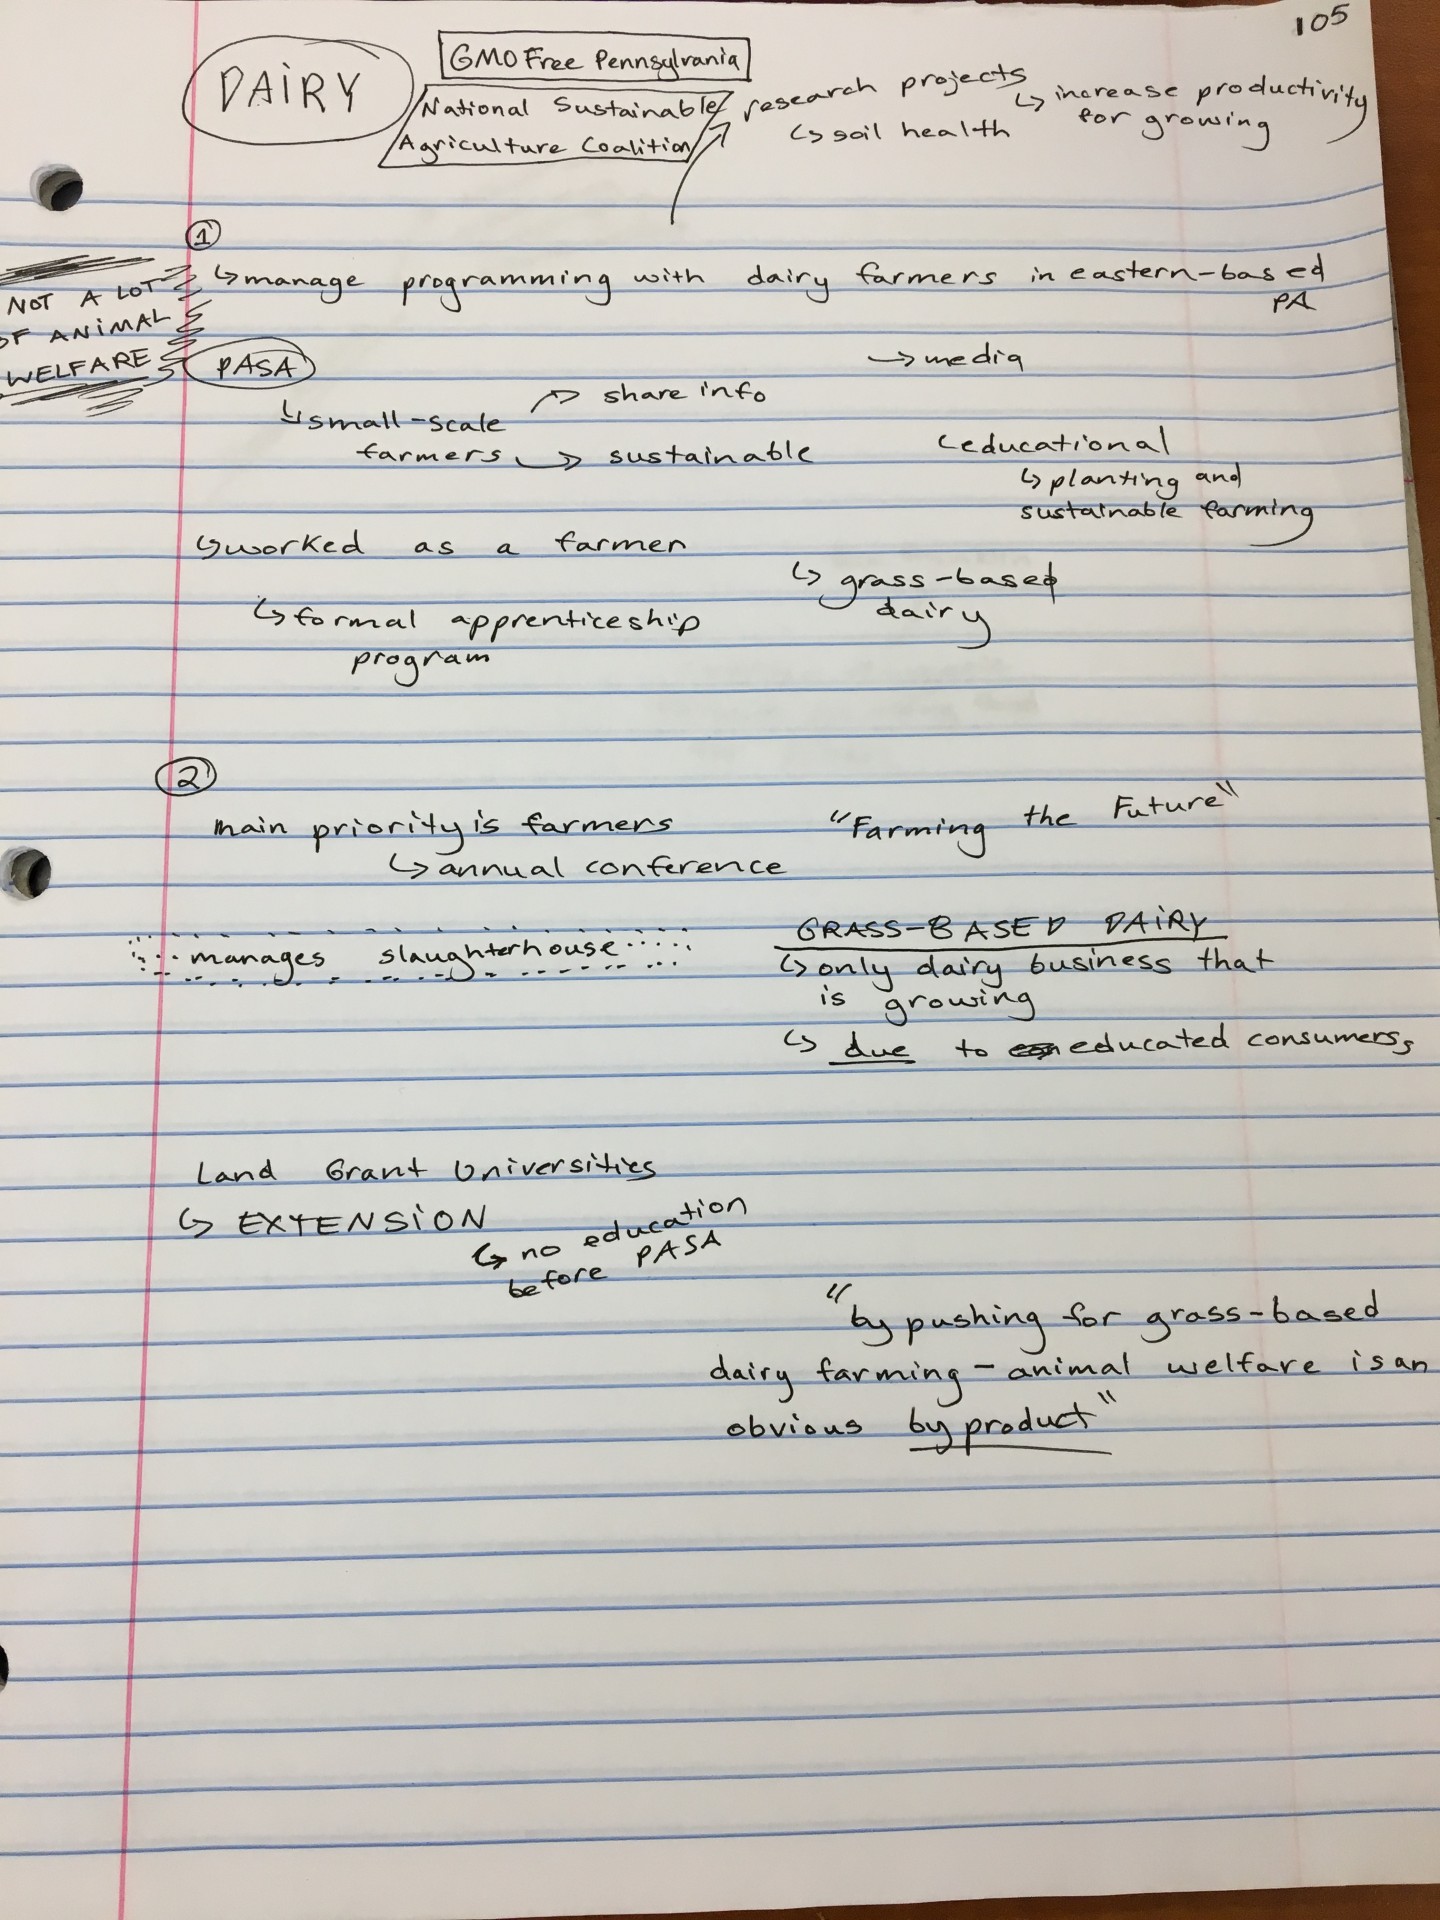 105
DAiRY
GMO Free Pennsylvania
National Sustainable
Agriculture Coalition
research projects
↳ soil health
↳ increase productivity
for growing
1
↳ manage programming with dairy farmers in eastern-based
PA
NOT A LOT
OF ANiMAL
WELFARE
PASA
→ media
↳ small-scale
farmers
→ share info
→ sustainable
educational
↳ planting and
sustainable farming
↳ worked as a farmer
↳ formal apprenticeship
program
↳ grass-based
dairy
2
main priority is farmers
↳ annual conference
"Farming the Future"
manages slaughterhouse
GRASS-BASED DAiRY
↳ only dairy business that
is growing
↳ due to educated consumers
Land Grant Universities
↳ EXTENSiON
↳ no education
before PASA
"by pushing for grass-based
dairy farming - animal welfare is an
obvious byproduct"